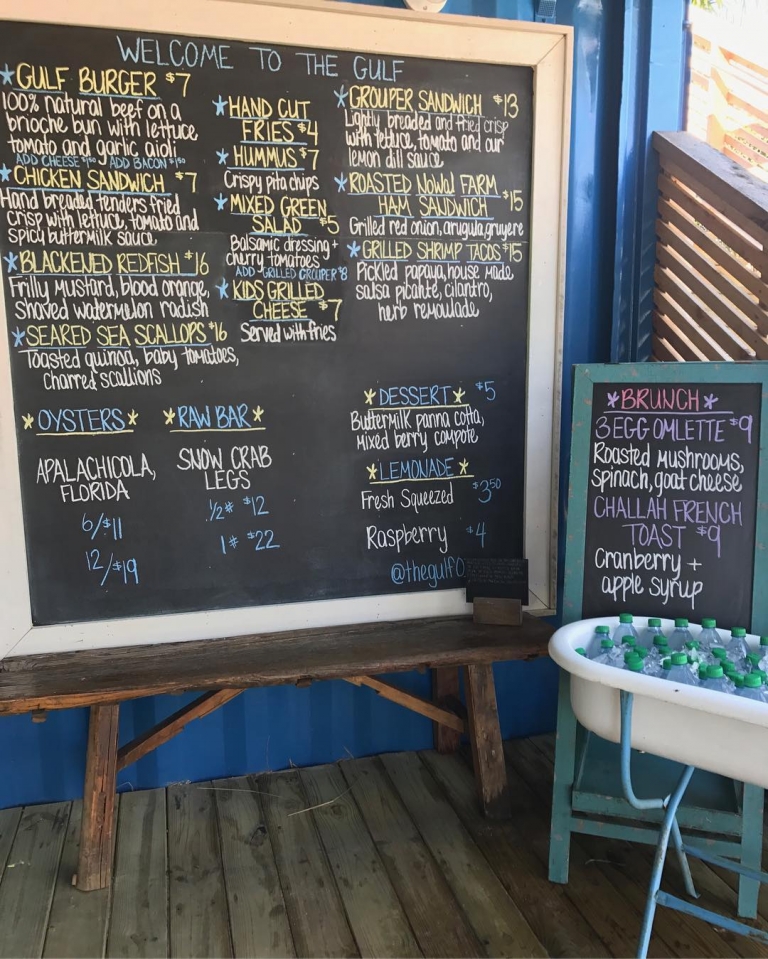 WELCOME TO THE GULF
GULF BURGER $7
100% natural beef on a
brioche bun with lettuce
tomato and garlic aioli
ADD CHEESE $1.50 ADD BACON $1.50
CHICKEN SANDWICH $7
Hand breaded tenders fried
crisp with lettuce, tomato and
spicy buttermilk sauce
BLACKENED REDFISH $16
Frilly mustard, blood orange,
shaved watermelon radish
SEARED SEA SCALLOPS $16
Toasted quinoa, baby tomatoes,
charred scallions
HAND CUT
FRIES $4
HUMMUS $7
Crispy pita chips
MIXED GREEN
SALAD $5
Balsamic dressing +
churry tomatoes
ADD GRILLED GROUPER $8
KIDS GRILLED
CHEESE $7
Served with fries
GROUPER SANDWICH $13
Lightly breaded and fried crisp
with lettuce, tomato and our
lemon dill sauce
ROASTED NOWAL FARM
HAM SANDWICH $15
Grilled red onion, arugula, gruyere
GRILLED SHRIMP TACOS $15
Pickled papaya, house made
salsa picante, cilantro,
herb remoulade
*OYSTERS*
APALACHICOLA,
FLORIDA
6/$11
12/$19
*RAW BAR*
SNOW CRAB
LEGS
1/2# $12
1# $22
*DESSERT* $5
Buttermilk panna cotta,
mixed berry compote
*LEMONADE*
Fresh Squeezed $3.50
Raspberry $4
@thegulfo
*BRUNCH*
3 EGG OMLETTE $9
Roasted mushrooms,
spinach, goat cheese
CHALLAH FRENCH
TOAST $9
Cranberry +
apple syrup